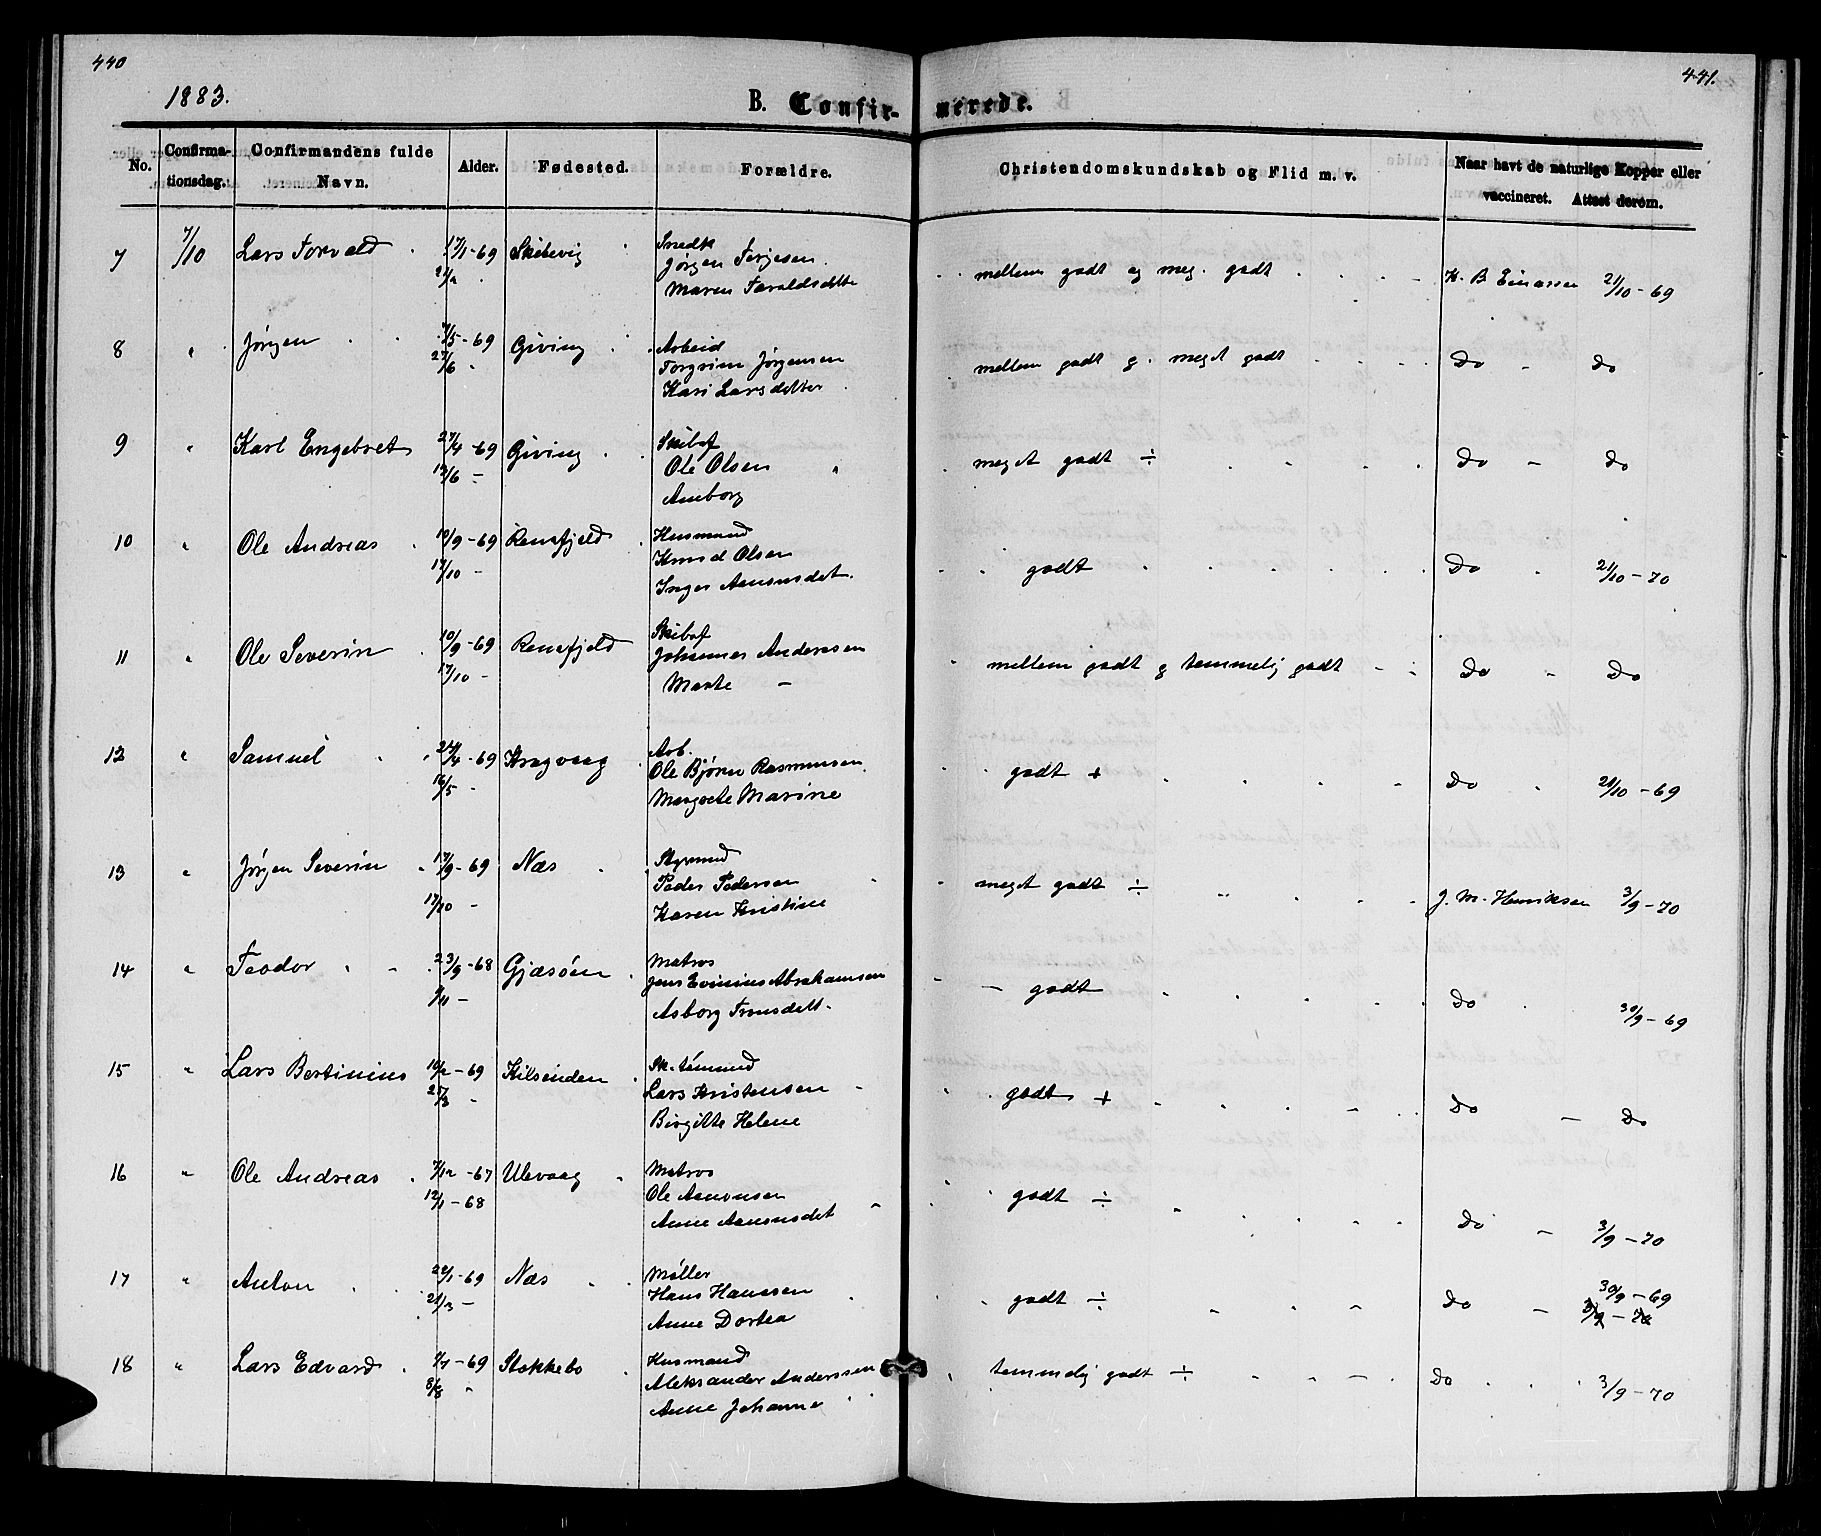 440
441.
1883.
B. Confir- merede.
No. Confirma-tionsdag. Confirmandens fulde Navn. Alder. Fødested. Forældre. Christendomskundskab og Flid m. v. Naar havt de naturlige Kopper eller vaccineret. Attest derom.
7 7/10 Lars Torvald 17/1-69 Skibevig Snedk
21/2 Jørgen Terjesen mellem godt og meg. godt K. B. Einarsen 21/10-69
Maren Taraldsdtte
8 " Jørgen 7/5-69 Giving Arbeid
27/6 Torgrim Jørgensen mellem godt g. meget godt Do - Do
Kari Larsdatter
9 " Karl Engebret 27/4-69 Giving Skibsf
13/6 - Ole Olsen " meget godt ÷ Do - Do
Anneborg
10 " Ole Andreas 10/9-69 Rensfjeld Husmand
17/10 - Knud Olsen godt Do 21/10-70
Inger Aanonsdet.
11 " Ole Severin 10/9-69 Rensfjeld Skibsf
17/10 - Johannes Andersen mellem godt g temmelig godt Do - Do
Marte -
12 " Samuel 24/4-69 Kragvaag Arb.
16/5 Ole Bjørn Rasmussen godt + Do 21/10-69
Margrete Marine
13 " Jørgen Severin 17/9-69 Næs Styrmand
17/10 - Peder Pedersen meget godt ÷ J. M. Henriksen 3/9-70
Karen Kristine
14 " Teodor 23/9-68 Gjæsøen Matros
8/11 - Jens Evinius Abrahamsen - godt Do 30/9-69
Asborg Tronsdatt.
15 " Lars Bertinius 10/2-69 Kilsenden Sk. tømmand
25/3 Lars Kristensen godt + Do - Do
Birgitte Helene
16 " Ole Andreas 7/12-67 Ulevaag Matros
12/1-68 Ole Aanonsen godt ÷ Do - 3/9-70
Anne Aanonsdet
17 " Anton 22/1-69 Næs Møller
21/3 - Hans Hanssen godt ÷ Do - 30/9-69
Anne Dortea 3/9-70
18 " Lars Edvard 7/7-69 Stokkebo Husmand
8/8 " Aleksander Anderssen temmelig godt ÷ Do 3/9-70
Anne Johanne